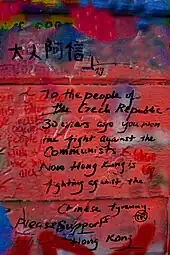 大人阿信
To the people of
the Czech Republic
30 years ago you won
the fight against the
Communists
Now Hong Kong is
fighting against the
Chinese tyranny.
Please Support
Hong Kong